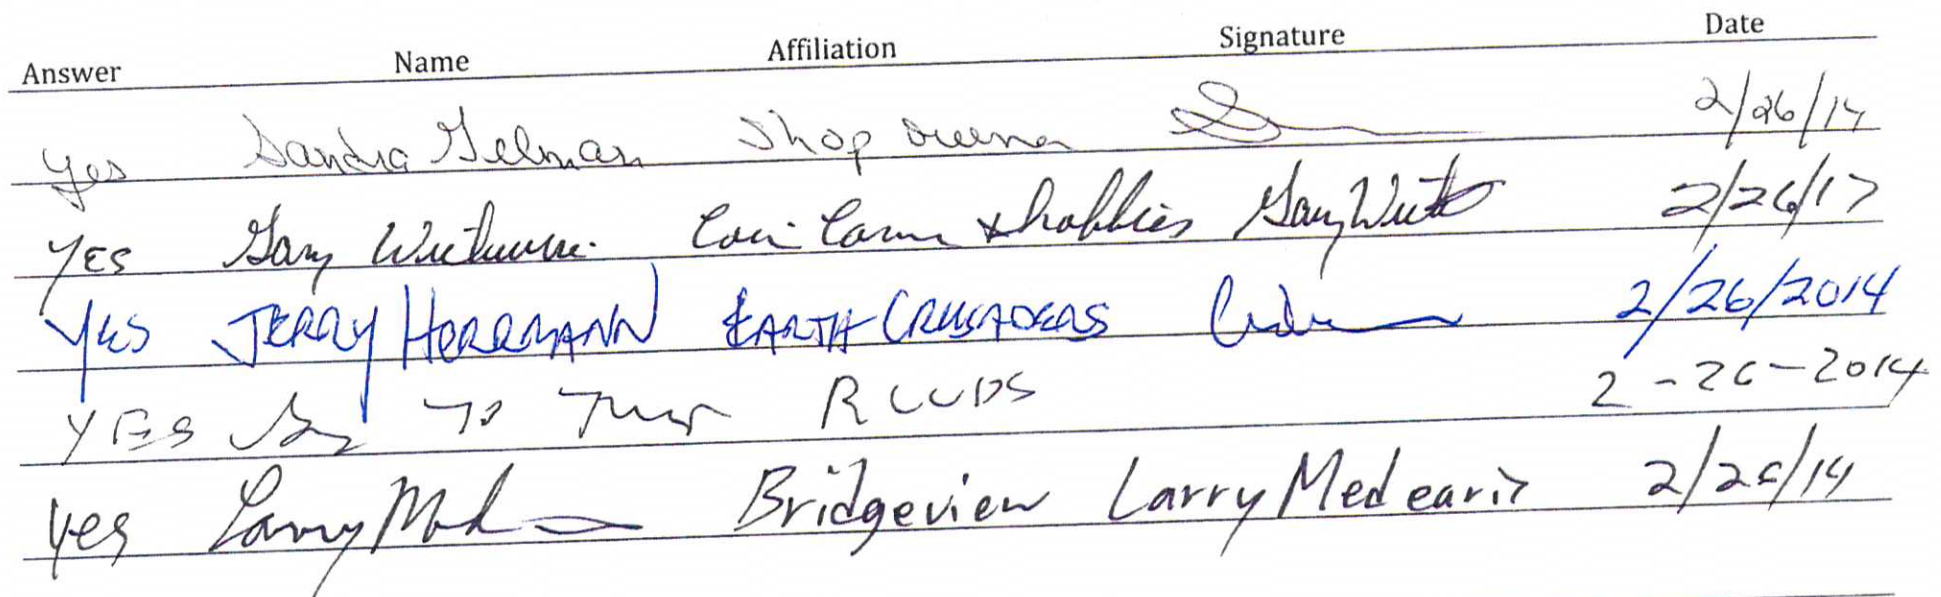 Answer Name Affiliation Signature Date
yes Sandra Gelman Shop owner 2/26/14
YES Gary Coin Corner & hobbies 2/26/17
YES JERRY HERRMANN EARTH CRUSADERS 2/26/2014
YES 2-26-2014
yes Larry Bridgeview Larry Medearis 2/26/14